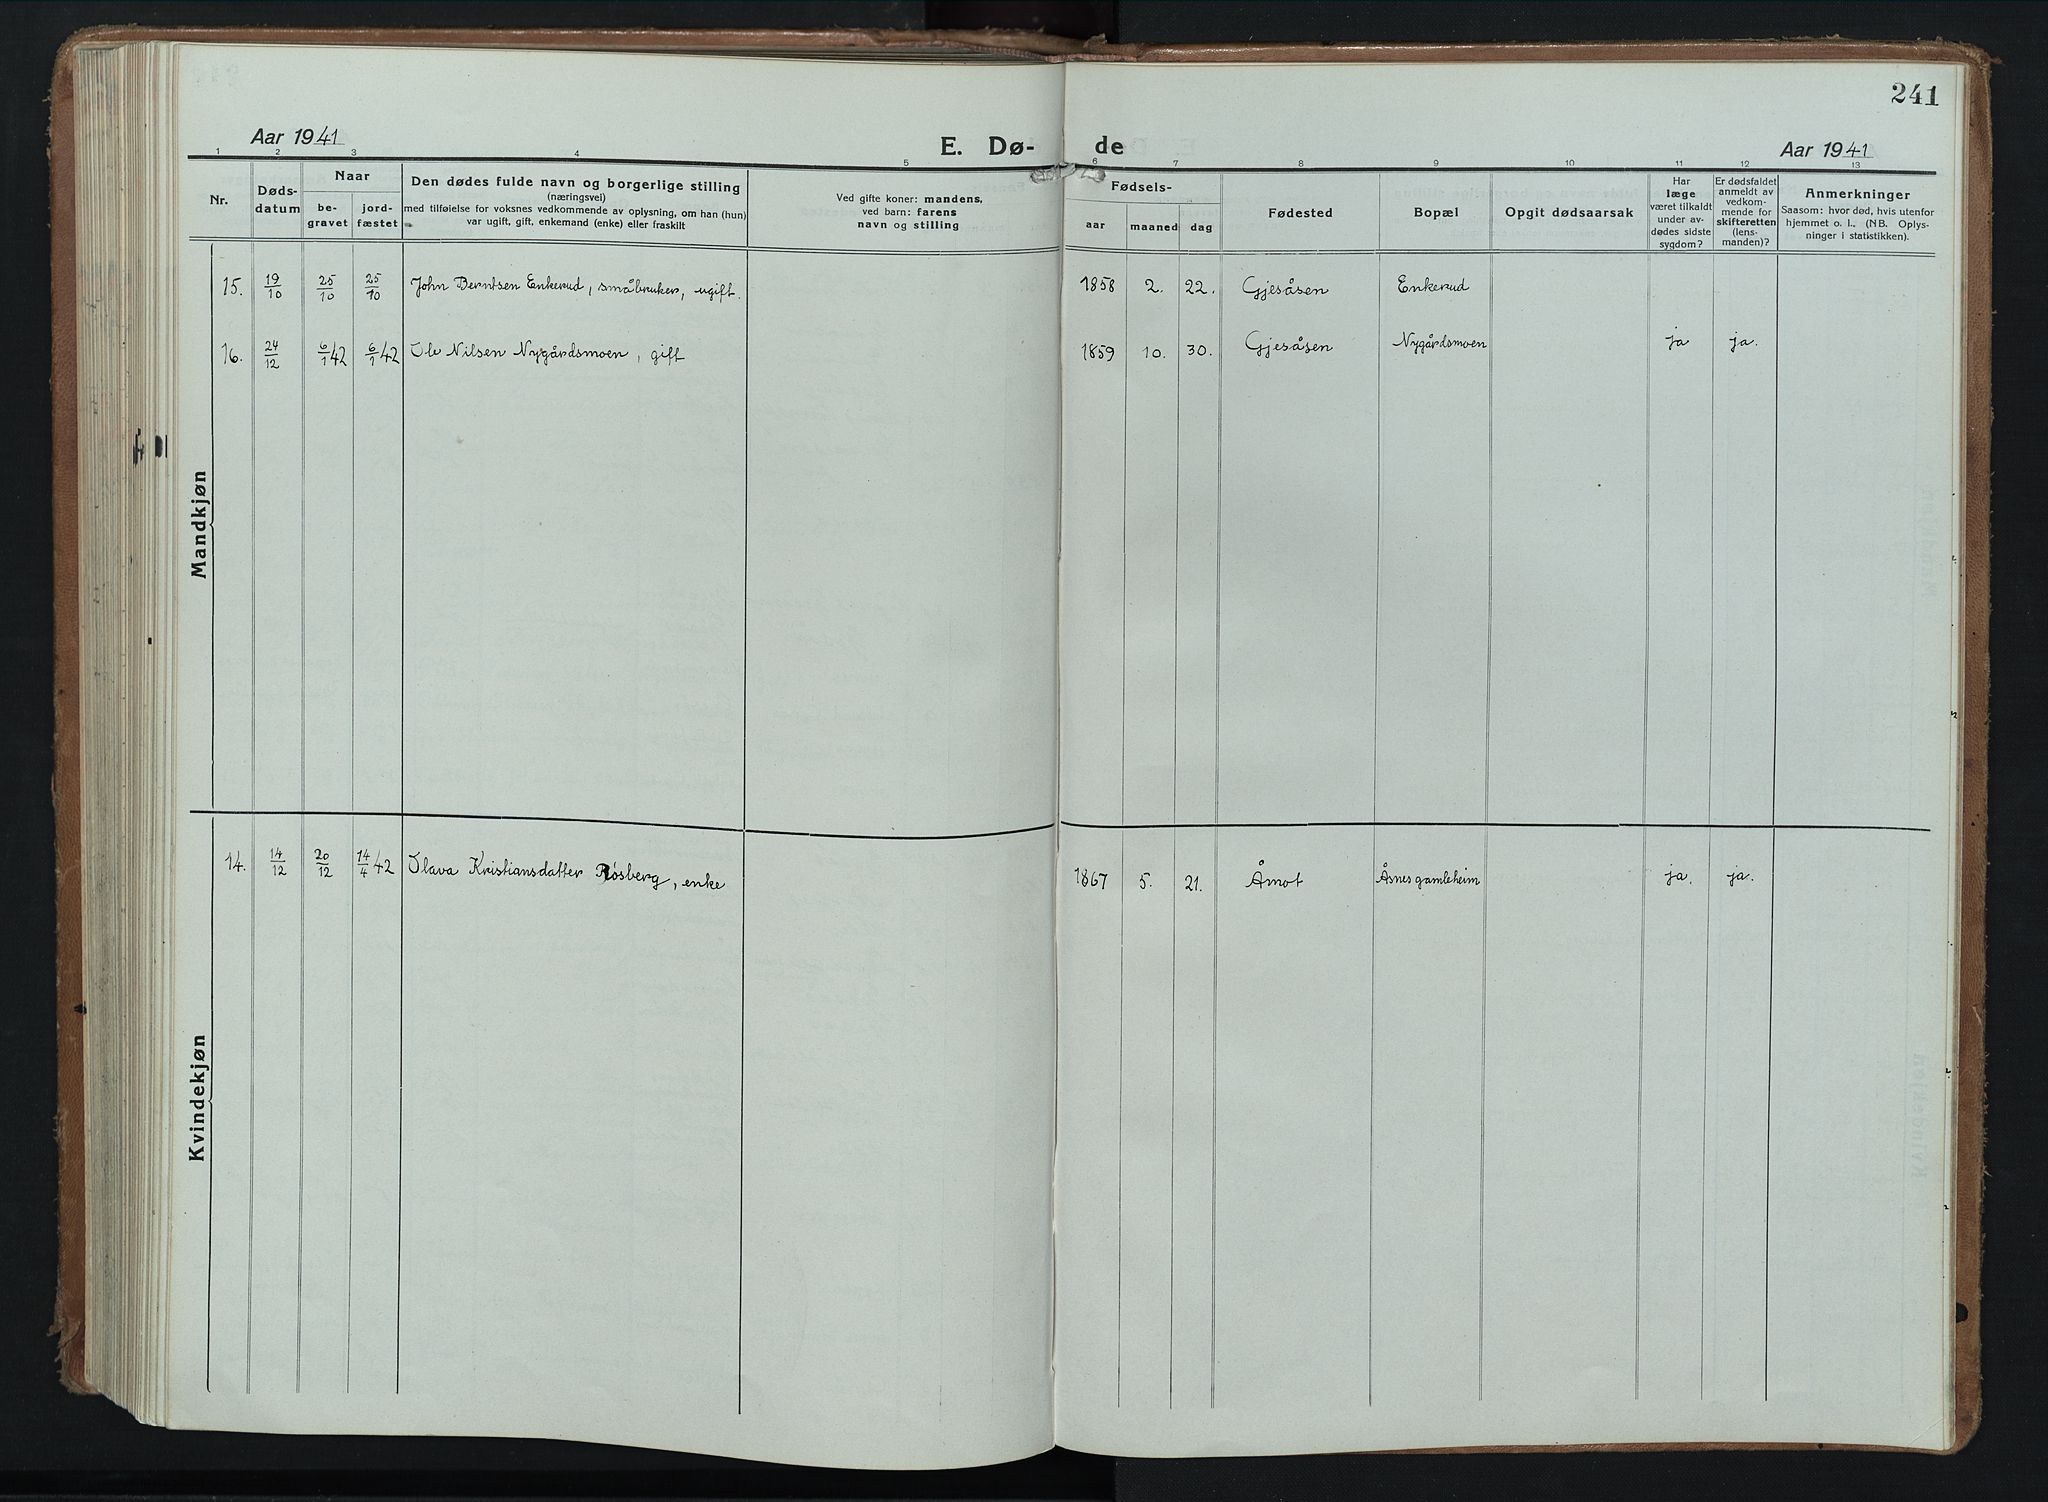 241
Aar 1941
E. Dø-
de
Aar 1941
1 2 3 4 5 6 7 8 9 10 11 12 13
Nr.
Døds-
datum
Naar
be-
gravet
jord-
fæstet
Den dødes fulde navn og borgerlige stilling
(næringsvei)
med tilføielse for voksnes vedkommende av oplysning, om han (hun)
var ugift, gift, enkemand (enke) eller fraskilt
Ved gifte koner: mandens,
ved barn: farens
navn og stilling
Fødsels-
aar
maaned
dag
Fødested
Bopæl
Opgit dødsaarsak
Har
læge
været tilkaldt
under av-
dødes sidste
sygdom?
Er dødsfaldet
anmeldt av
vedkom-
mende for
skifteretten
(lens-
manden)?
Anmerkninger
Saasom: hvor død, hvis utenfor
hjemmet o. l., (NB. Oplys-
ninger i statistikken).
Mandkjøn
15. 19/10 25/10 25/10 John Berntsen Enkerud, småbruker, ugift. 1858 2. 22. Gjesåsen Enkerud
16. 24/12 6/1 42 6/1 42 Ole Nilsen Nygårdsmoen, gift 1859 10. 30. Gjesåsen Nygårdsmoen ja ja.
Kvindekjøn
14. 14/12 20/12 14/4 42 Olava Kristiansdatter Røsberg, enke 1867 5. 21. Åmot Åsnes gamleheim ja. ja.